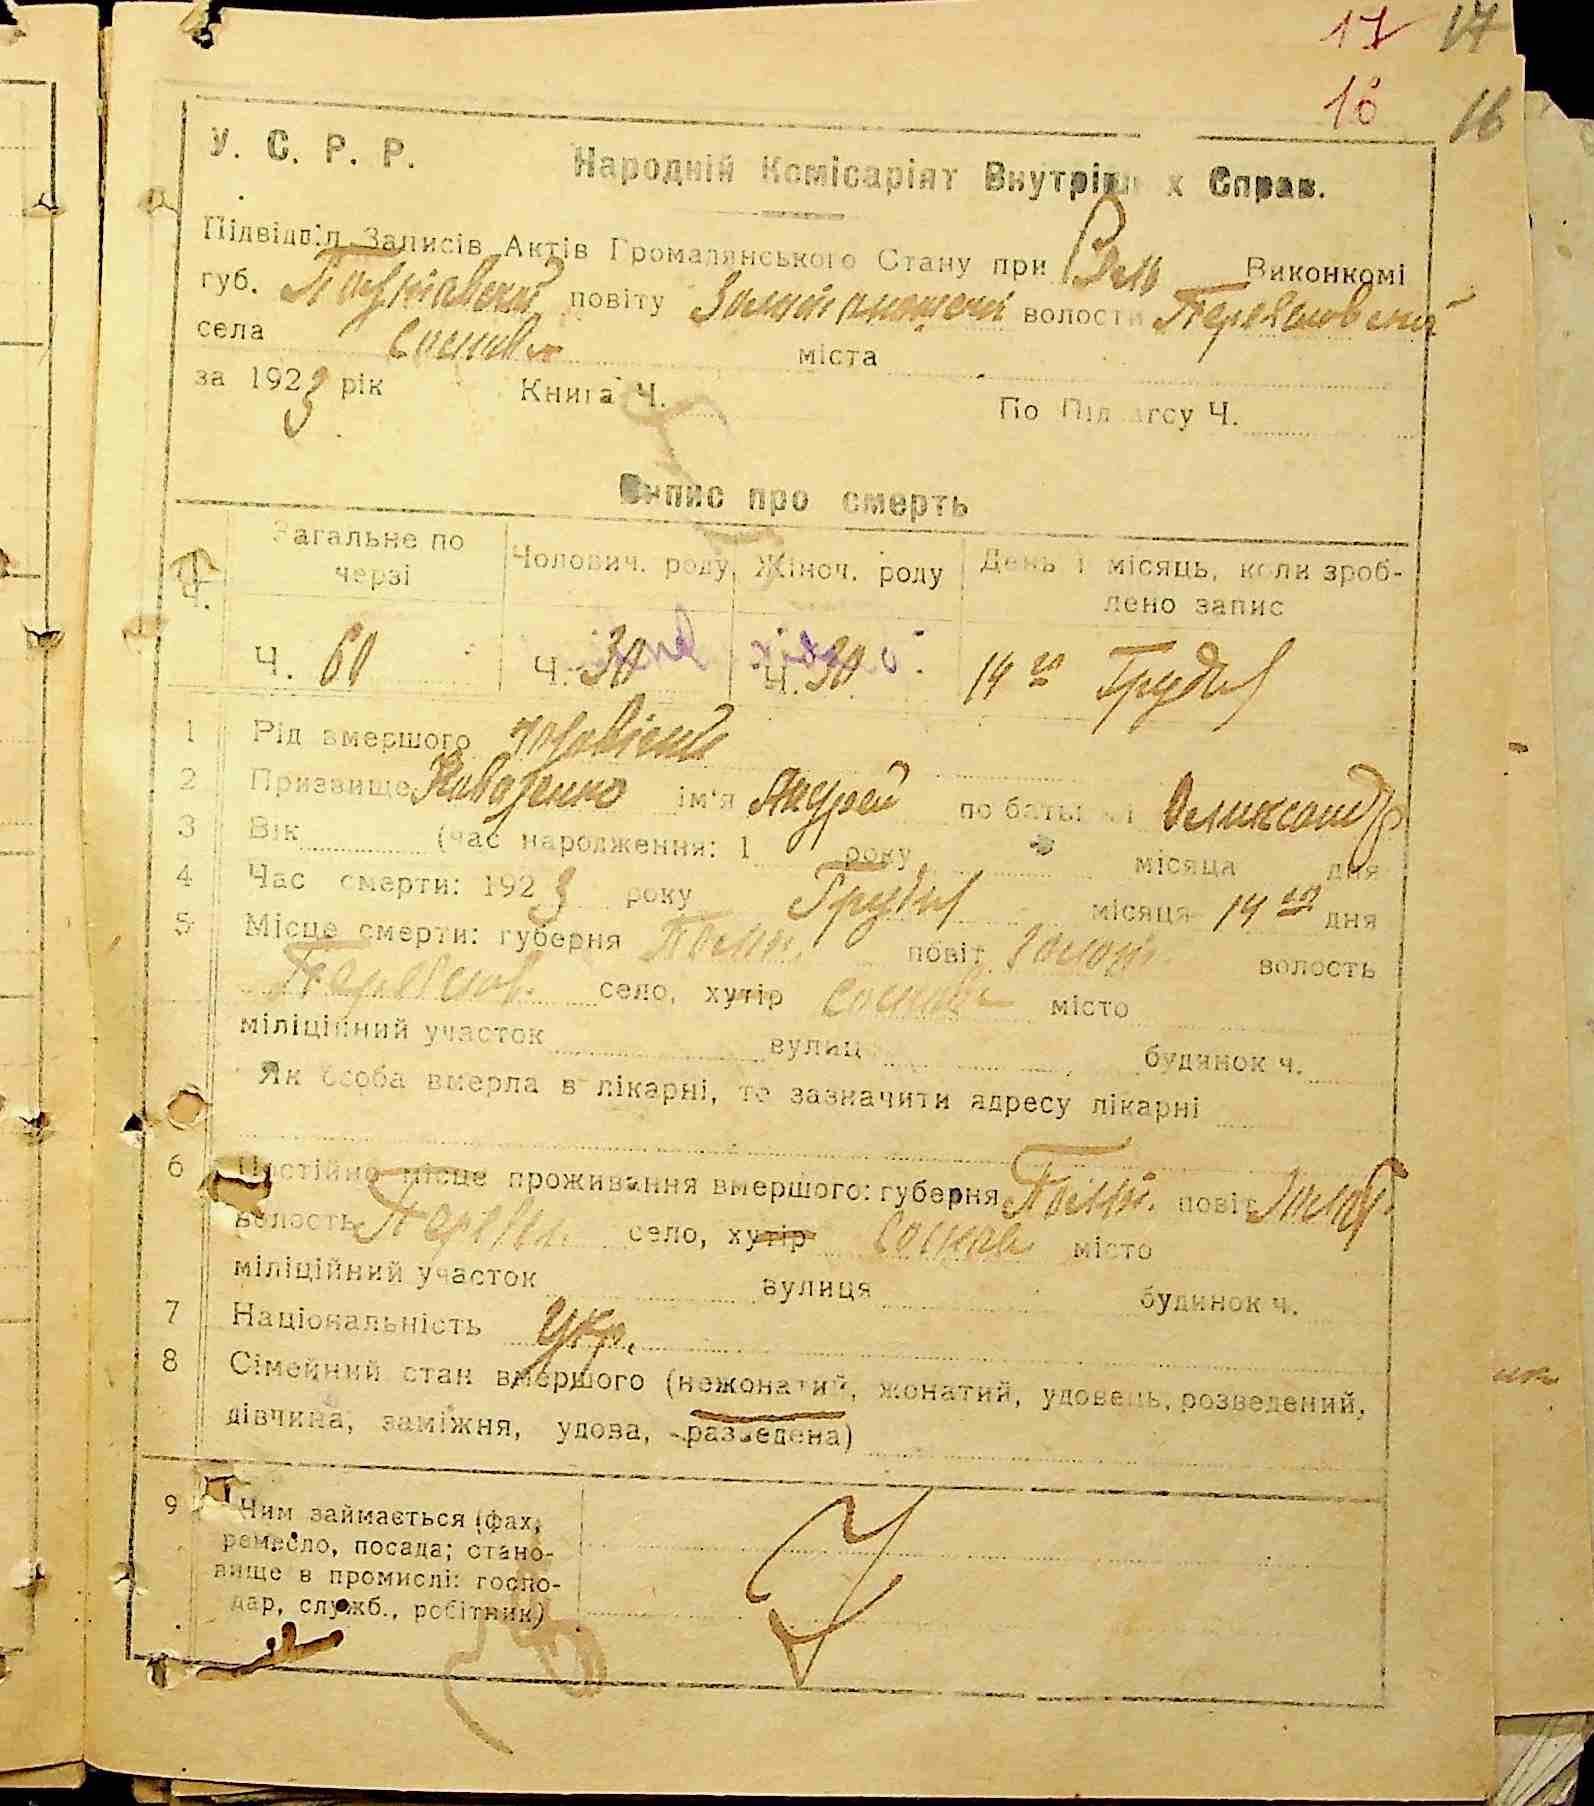 17 17
16 16
У. С. Р. Р. Народній Комісаріят Внутрішн х Справ.
Підвідділ Записів Актів Громадянського Стану при Виконкомі
губ. Полтавской повіту Золотоношской волости
села Соснова міста
за 1923 рік Книга Ч. По Під агсу Ч.
Запис про смерть
Ч. Загальне по черзі Чолович. роду Жіноч. роду День і місяць, коли зроб-
лено запис
Ч. 60 Ч. 30 Ч. 30 14го Грудня
1 Рід вмершого
2 Призвище Коваленко ім'я Андрей по батькові Олександр
3 Вік (час народження: 1 року місяца дня
4 Час смерти: 1923 року Грудня місяця 14го дня
5 Місце смерти: губерня Полт. повіт Золот. волость
село, хутір Соснова місто
міліційний участок вулиця будинок ч.
Як особа вмерла в лікарні, то зазначити адресу лікарні
6 Постійне місце проживання вмершого: губерня Полт. повіт Золот.
волость село, хутір Соснова місто
міліційний участок вулиця будинок ч.
7 Національність Укр.
8 Сімейний стан вмершого (нежонатий, жонатий, удовець, розведений,
дівчина, заміжня, удова, разведена)
9 Чим займається (фах,
ремесло, посада; стано-
вище в промислі: госпо-
дар, служб., робітник)